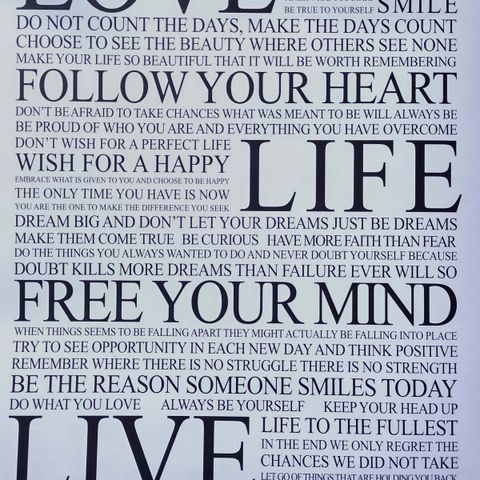 LOVE
BE TRUE TO YOURSELF SMILE
DO NOT COUNT THE DAYS, MAKE THE DAYS COUNT
CHOOSE TO SEE THE BEAUTY WHERE OTHERS SEE NONE
MAKE YOUR LIFE SO BEAUTIFUL THAT IT WILL BE WORTH REMEMBERING
FOLLOW YOUR HEART
DON'T BE AFRAID TO TAKE CHANCES WHAT WAS MEANT TO BE WILL ALWAYS BE
BE PROUD OF WHO YOU ARE AND EVERYTHING YOU HAVE OVERCOME
DON'T WISH FOR A PERFECT LIFE
WISH FOR A HAPPY
LIFE
EMBRACE WHAT IS GIVEN TO YOU AND CHOOSE TO BE HAPPY
THE ONLY TIME YOU HAVE IS NOW
YOU ARE THE ONE TO MAKE THE DIFFERENCE YOU SEEK
DREAM BIG AND DON'T LET YOUR DREAMS JUST BE DREAMS
MAKE THEM COME TRUE BE CURIOUS HAVE MORE FAITH THAN FEAR
DO THE THINGS YOU ALWAYS WANTED TO DO AND NEVER DOUBT YOURSELF BECAUSE
DOUBT KILLS MORE DREAMS THAN FAILURE EVER WILL SO
FREE YOUR MIND
WHEN THINGS SEEMS TO BE FALLING APART THEY MIGHT ACTUALLY BE FALLING INTO PLACE
TRY TO SEE OPPORTUNITY IN EACH NEW DAY AND THINK POSITIVE
REMEMBER WHERE THERE IS NO STRUGGLE THERE IS NO STRENGTH
BE THE REASON SOMEONE SMILES TODAY
DO WHAT YOU LOVE ALWAYS BE YOURSELF KEEP YOUR HEAD UP
LIVE
LIFE TO THE FULLEST
IN THE END WE ONLY REGRET THE
CHANCES WE DID NOT TAKE
LET GO OF THINGS THAT ARE HOLDING YOU BACK